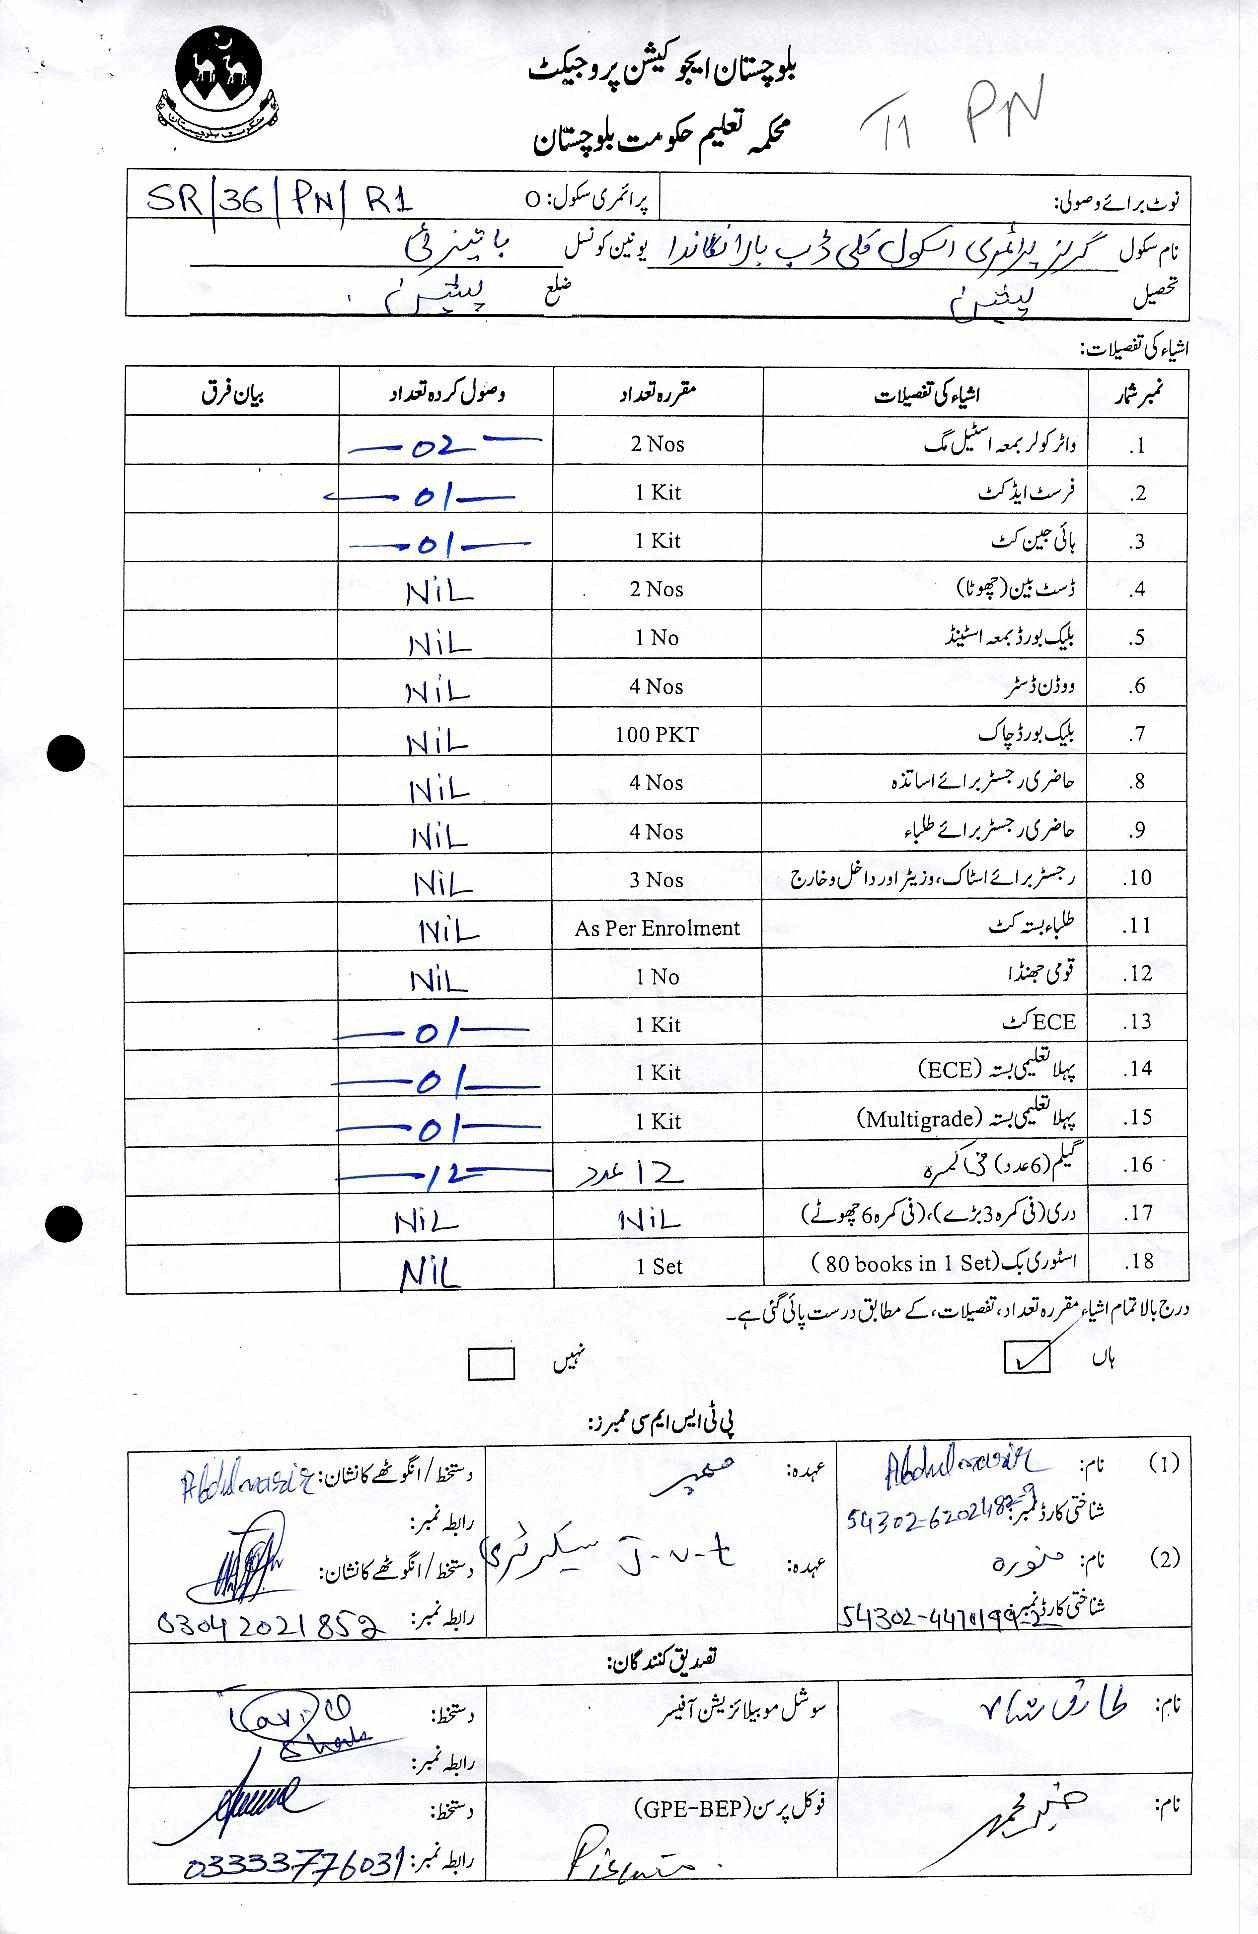 بلوچستان ایجوکیشن پروجیکٹ
محکمہ تعلیم حکومت بلوچستان
T1 PN
نوٹ برائے وصولی:
پرائمری سکول: O SR/36/PN/R1
نام سکول گرلز پرائمری اسکول کلی ڈب یونین کونسل
تحصیل پشین ضلع پشین
اشیاء کی تفصیلات:
نمبر شمار اشیاء کی تفصیلات مقررہ تعداد وصول کردہ تعداد بیان فرق
1. واٹر کولر بمعہ اسٹیل مگ 2 Nos 02
2. فرسٹ ایڈ کٹ 1 Kit 01
3. ہائی جین کٹ 1 Kit 01
4. ڈسٹ بین (چھوٹا) 2 Nos NiL
5. بلیک بورڈ بمعہ اسٹینڈ 1 No NiL
6. ووڈن ڈسٹر 4 Nos NiL
7. بلیک بورڈ چاک 100 PKT NiL
8. حاضری رجسٹر برائے اساتذہ 4 Nos NiL
9. حاضری رجسٹر برائے طلباء 4 Nos NiL
10. رجسٹر برائے اسٹاک، وزیٹر اور داخل و خارج 3 Nos NiL
11. طلباء بستہ کٹ As Per Enrolment NiL
12. قومی جھنڈا 1 No NiL
13. ECE کٹ 1 Kit 01
14. پہلا تعلیمی بستہ (ECE) 1 Kit 01
15. پہلا تعلیمی بستہ (Multigrade) 1 Kit 01
16. گیلم (6 عدد) فی کمرہ 12 عدد 12
17. دری (فی کمرہ 3 بڑے)، (فی کمرہ 6 چھوٹے) NiL NiL
18. اسٹوری بک (80 books in 1 Set) 1 Set NiL
درج بالا تمام اشیاء مقررہ تعداد، تفصیلات، کے مطابق درست پائی گئی ہے۔
ہاں ✓ نہیں
پی ٹی ایس ایم سی ممبرز:
(1) نام: Abdulnasir عہدہ: ممبر دستخط / انگوٹھے کا نشان: Abdulnasir
شناختی کارڈ نمبر: رابطہ نمبر:
(2) نام: منورہ عہدہ: J-v-t سیکرٹری دستخط / انگوٹھے کا نشان:
شناختی کارڈ نمبر: رابطہ نمبر: 03042021852
تصدیق کنندگان:
نام: طارق شاہ سوشل موبیلائزیشن آفیسر دستخط:
رابطہ نمبر:
نام: فوکل پرسن (GPE-BEP) دستخط:
رابطہ نمبر: 03333776031